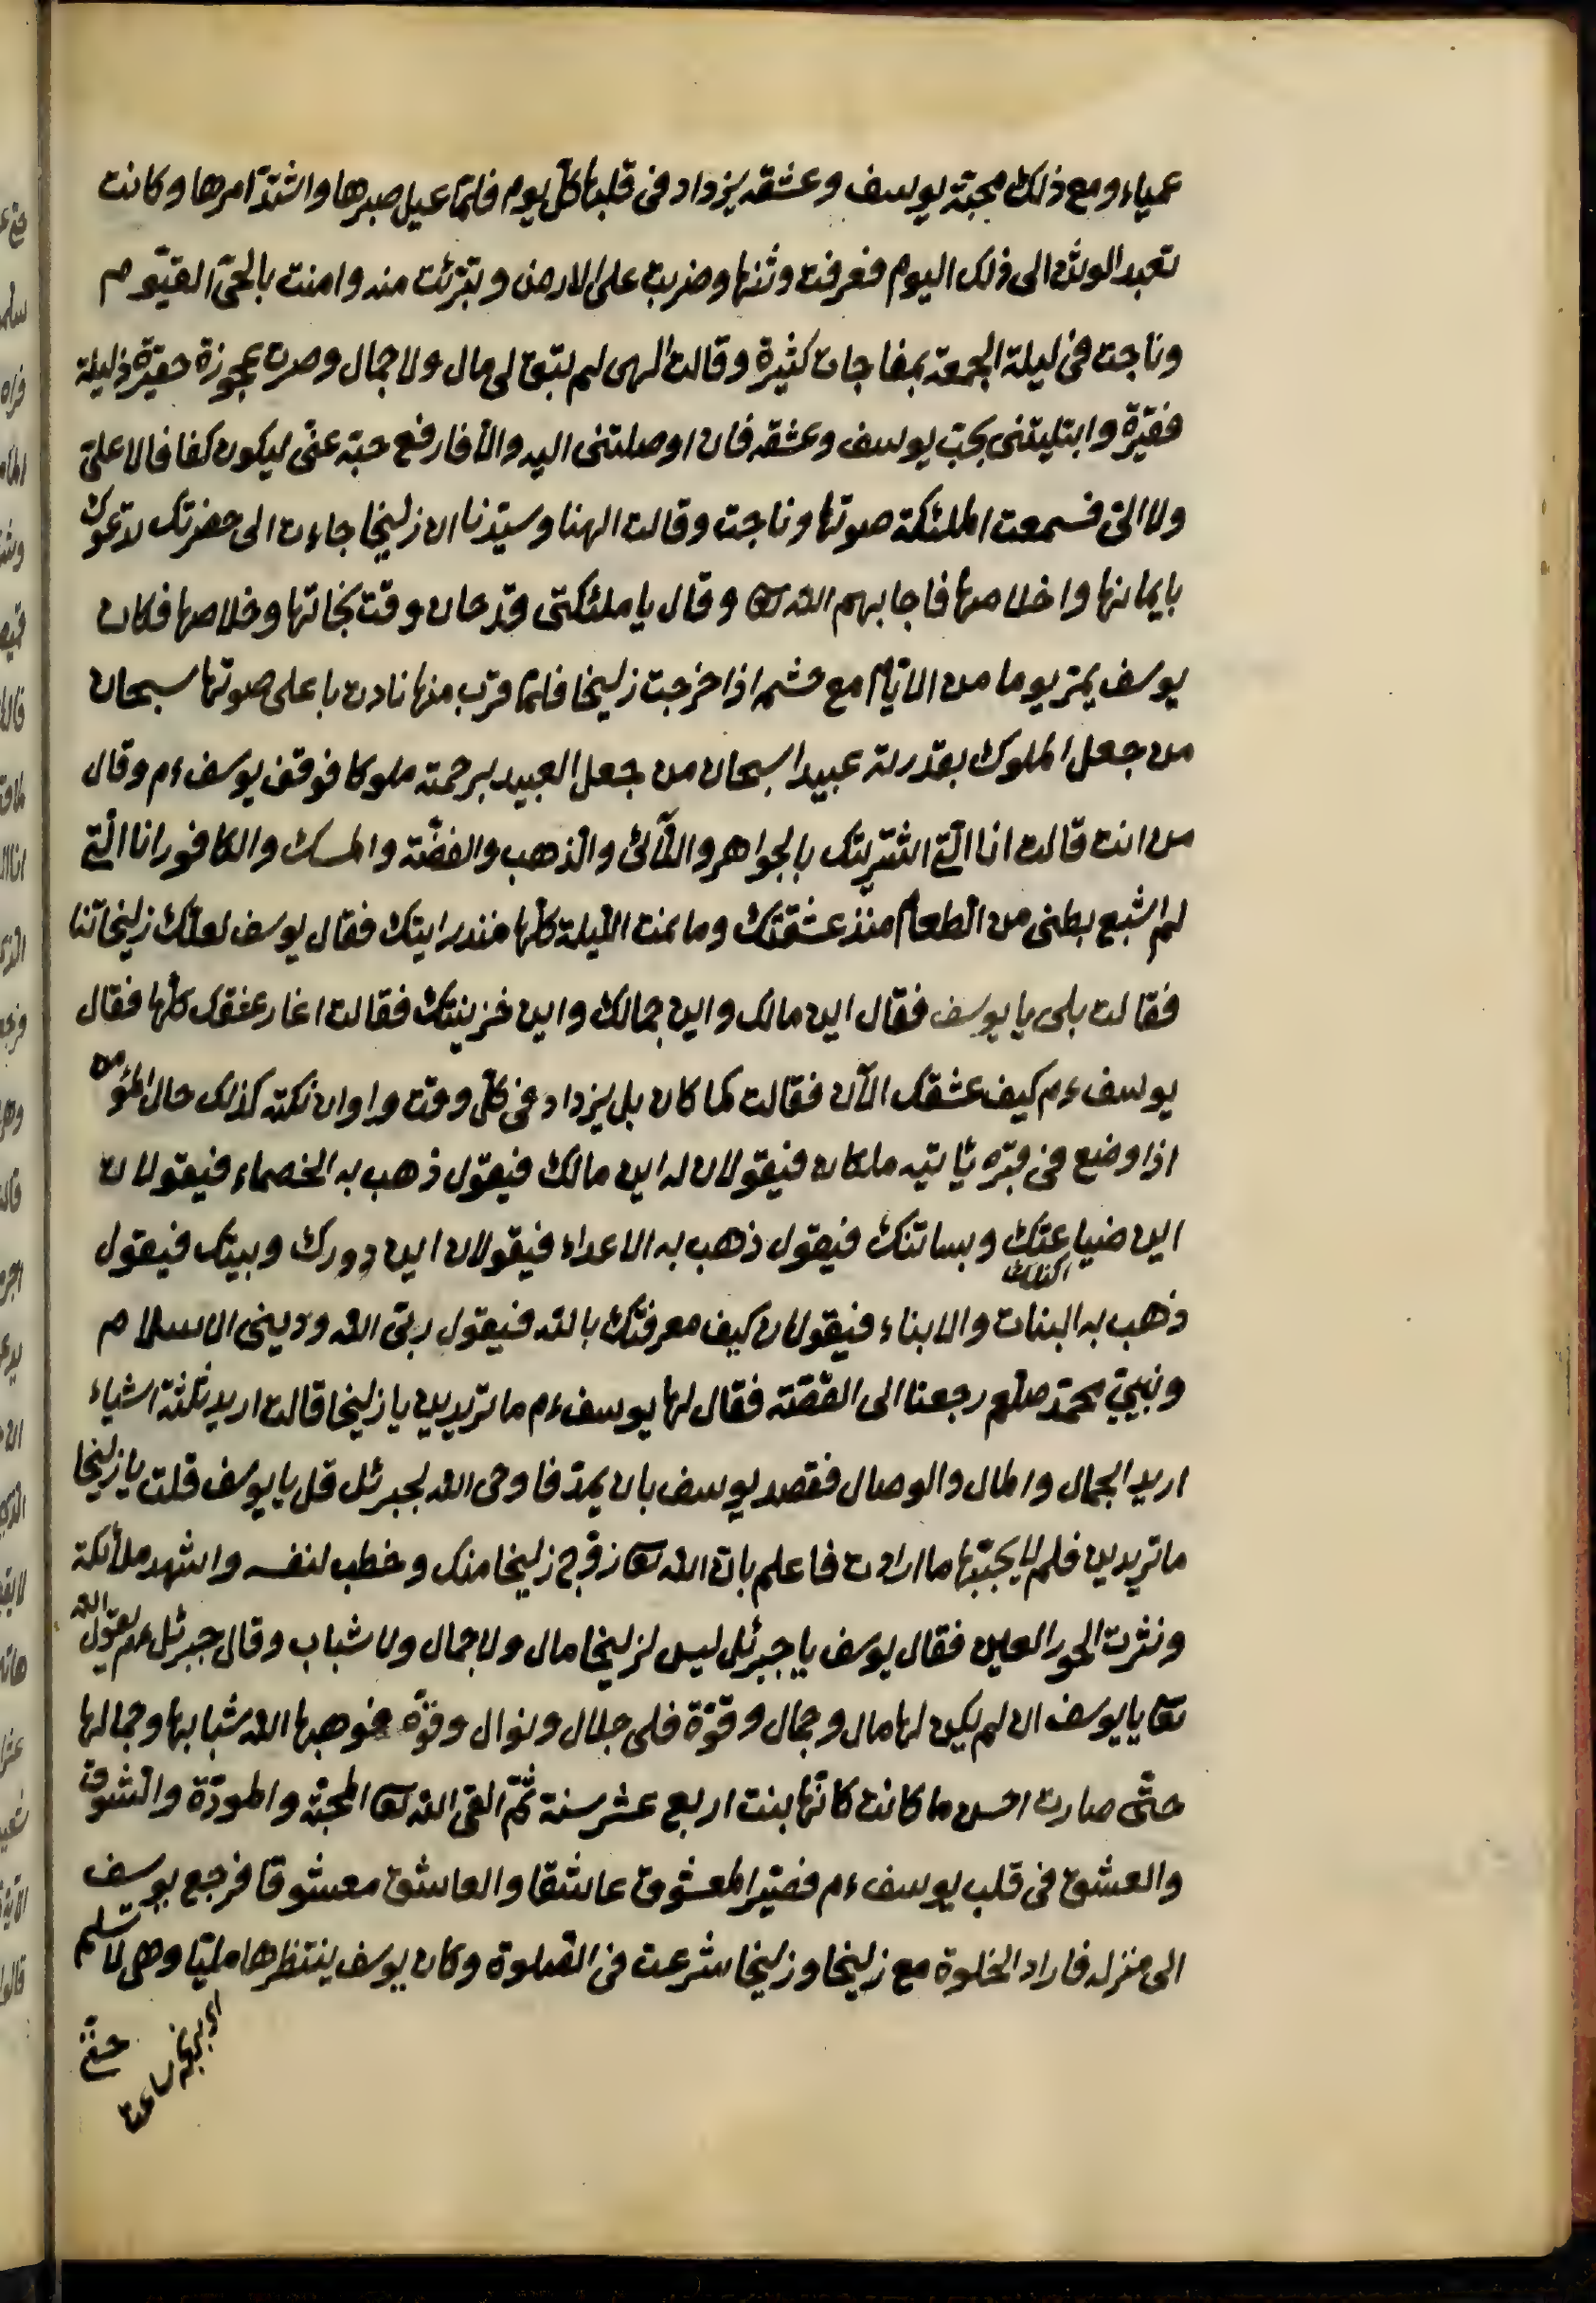 عمياء ومع ذلك محبّة يوسف وعشقه يزداد فى قلبها كلّ يوم فلمّا عيل صبرها واشتدّ امرها وكانت
تعبد الوثن الى ذلك اليوم فعرفت وثنها وضربت على الارض وتبرّئت منه وامنت بالحىّ القيّوم
وناجت فى ليلة الجمعة بمفاجات كثيرة وقالت الهى لم تبق لى مال ولا جمال وصرت عجوزة حقيرة ذليلة
فقيرة وابتليتنى بحبّ يوسف وعشقه فان اوصلتنى اليه والّا فارفع حبّه عنّى ليكون كفافا لا علىّ
ولا الىّ فسمعت الملئكة صوتها وناجت وقالت الهنا وسيّدنا ان زليخا جاءت الى حضرتك تدعوك
بايمانها واخلاصها فاجابهم الله تعا وقال يا ملئكتى قد حان وقت نجاتها وخلاصها فكان
يوسف يمرّ يوما من الايّام مع حشمه اذا خرجت زليخا فلمّا قرب منها نادت باعلى صوتها سبحان
من جعل الملوك بقدرته عبيدا سبحان من جعل العبيد برحمته ملوكا فوقف يوسف ءم وقال
من انت قالت انا الّتى اشتريتك بالجواهر واللّآلئ والذهب والفضّة والمسك والكافور انا الّتى
لم اشبع بطنى من الطعام منذ عشقتك وما نمت اللّيلة كلّها منذ رايتك فقال يوسف لعلّك زليخاتنا
فقالت بلى يا يوسف فقال اين مالك واين جمالك واين خزينتك فقالت اغار عشقك كلّها فقال
يوسف ءم كيف عشقك الآن فقالت كما كان بل يزداد فى كلّ وقت واوان نكتة كذلك حال المؤمن
اذا وضع فى قبره يأتيه ملكان فيقولان له اين مالك فيقول ذهب به الخصماء فيقولان
اين ضياعتك وبساتنك فيقول ذهب به الاعداء فيقولان اين دورك وبيتك فيقول
ذهب به البنات والابناء فيقولان كيف معرفتك بالله فيقول ربّى الله ودينى الاسلام
ونبيىّ محمّد صلعم رجعنا الى القصّة فقال لها يوسف ءم ما تريدين يا زليخا قالت اريد ثلثة اشياء
اريد الجمال والمال والوصال فقصد يوسف بان يمرّ فاوحى الله لجبرئل قل يا يوسف قلت يا زليخا
ما تريدين فلم لا يجبّها ما ارادت فاعلم بانّ الله تعا زوّج زليخا منك وخطب لنفسه واشهد ملائكة
ونثرت الحور العين فقال يوسف يا جبرئل ليس لزليخا مال ولا جمال ولا شباب وقال جبرئل عم يقول الله
تعا يا يوسف ان لم يكن لها مال وجمال وقوّة فلى جلال ونوال وقوّة فوهبها الله شبابها وجمالها
حتّى صارت احسن ما كانت كانّها بنت اربع عشر سنة ثمّ القى الله تعا المحبّة والمودّة والشوق
والعشق فى قلب يوسف ءم فصيّر المعشوق عاشقا والعاشق معشوقا فرجع يوسف
الى منزله فاراد الخلوة مع زليخا وزليخا شرعت فى الصّلوة وكان يوسف ينتظرها مليّا وهى لا تسلم
حتّى